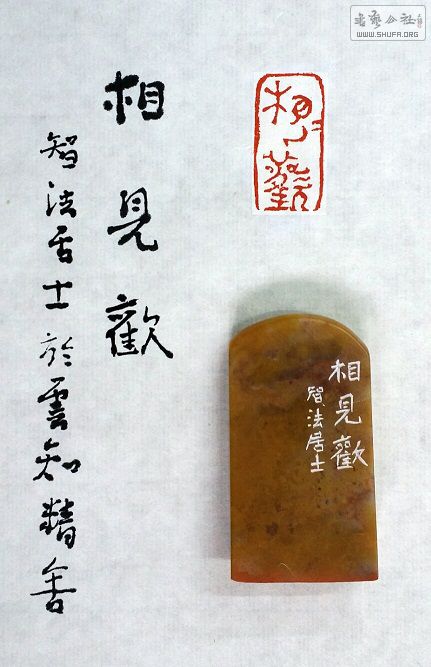 相見歡
智法居士於雲知精舍
相見歡
相見歡
智法居士
書藝公社
WWW.SHUFA.ORG